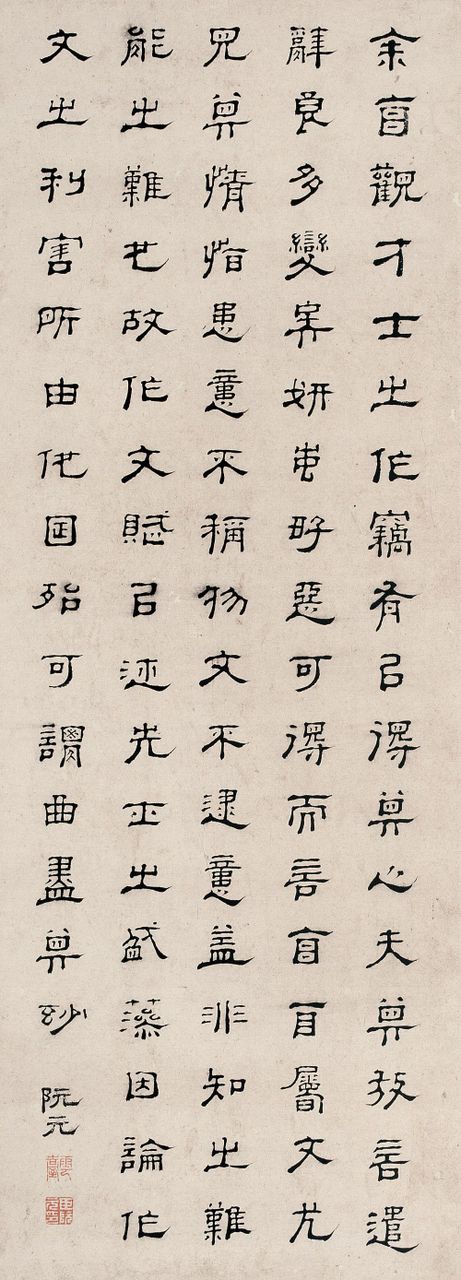 余每觀才士之作竊有以得其心夫其放言遣
辭良多變矣妍蚩好惡可得而言每自屬文尤
見其情恒患意不稱物文不逮意蓋非知之難
能之難也故作文賦以述先士之盛藻因論作
文之利害所由他日殆可謂曲盡其妙
阮元